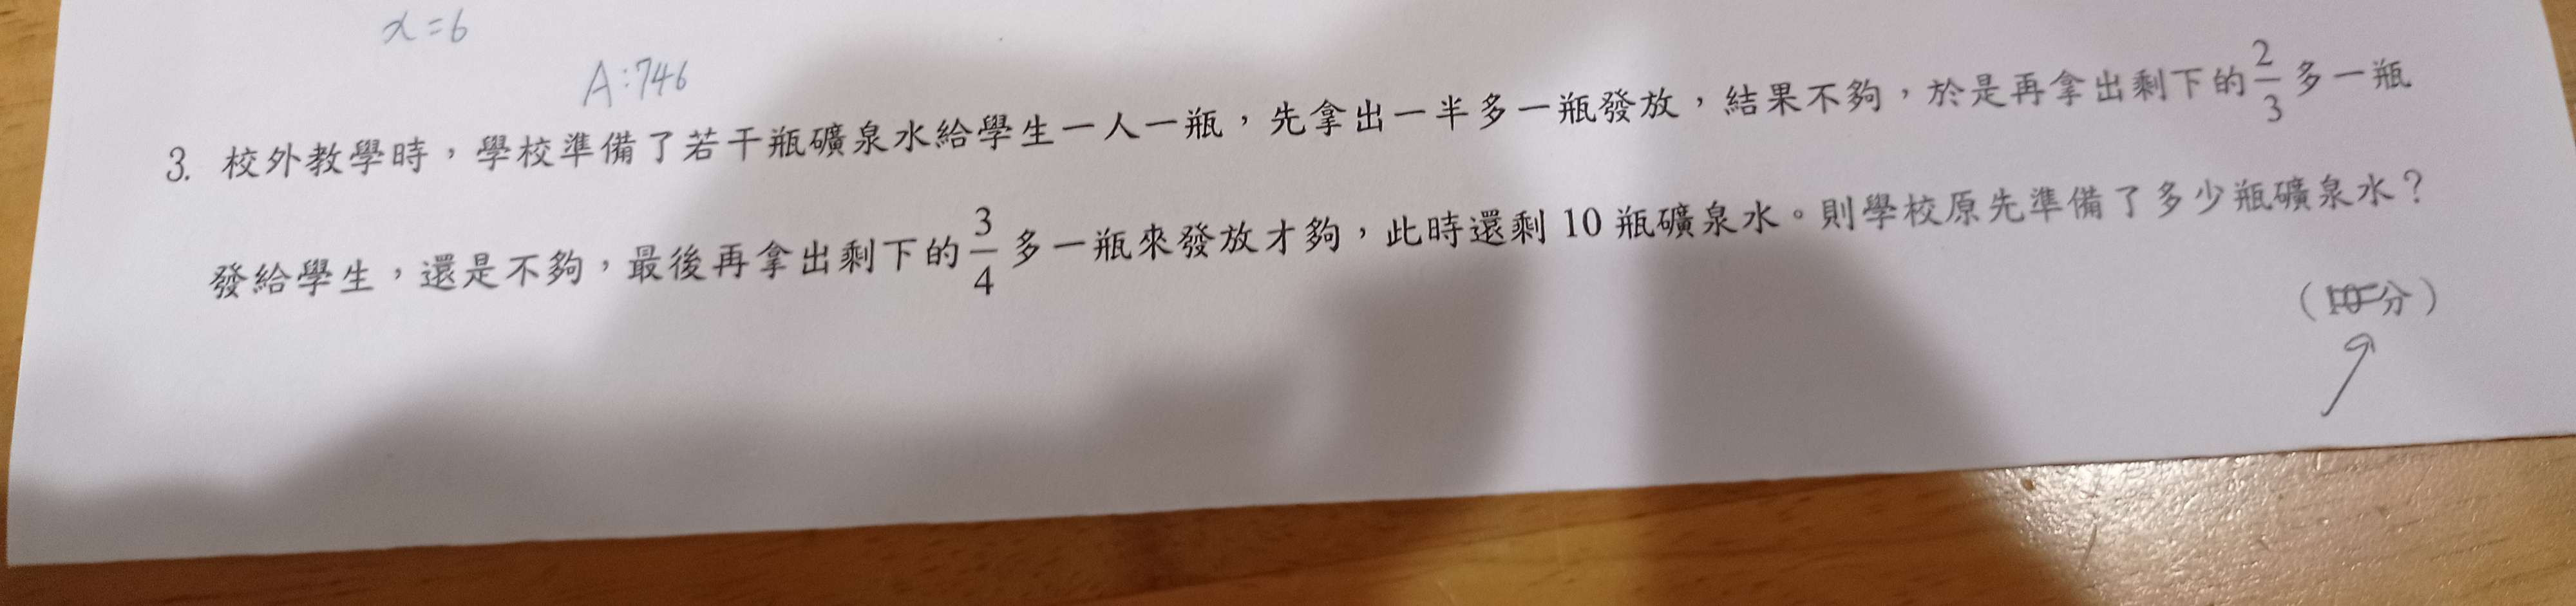 x=6
A:746
3. 校外教學時，學校準備了若干瓶礦泉水給學生一人一瓶，先拿出一半多一瓶發放，結果不夠，於是再拿出剩下的2/3多一瓶
發給學生，還是不夠，最後再拿出剩下的3/4多一瓶來發放才夠，此時還剩 10 瓶礦泉水。則學校原先準備了多少瓶礦泉水？
（10分）